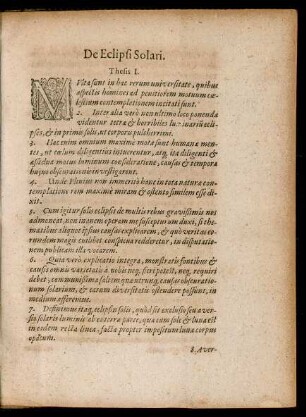 De Eclipsi Solari.
Thesis I.
MUlta sunt in hac rerum universitate, quibus
aspectis homines ad penitiorem motuum cæ-
lestium contemplationem incitati sunt.
2. Inter alia verò non ultimo loco ponenda
videntur tetra & horribiles luminariū ecli-
pses, & in primis solis, ut corporis pulcherrimi.
3. Hac enim omnium maximè mota sunt humanæ men-
tes, ut in eam diligentius intuerentur, atq; ita diligenti &
assidua motus luminum consideratione, causas & tempora
hujus obscurationis investigarent.
4. Unde Plinius non immeritò hanc in tota natura con-
templatione rem maximè miram & ostento similem esse di-
xit.
5. Cum igitur solis eclipsis de multis rebus gravissimis nos
admoneat, non interim operam me abusurum duxi, si the-
matibus aliquot ipsius causas explicarem, & quò veritas ea-
rundem magis cuilibet conspicua redderetur, in disputatio-
nem publicam illa vocarem.
6. Quia verò explicatio integra, monstretis fontibus &
causis omnis varietatis à nobis neq; suscepi est, neq; requiri
debet, communissima saltem quæ tum ad causas obscuratio-
num solarium, & earum diversitatis ostendere possunt, in
medium afferemus.
7. Definimus itaq; eclipsin solis, quòd sit exclusio seu a ver-
sio solaris luminis ab ea terra parte, qua cum sole & luna est
in eadem recta linea, facta propter impositum luna corpus
opacum.
8. Aver-